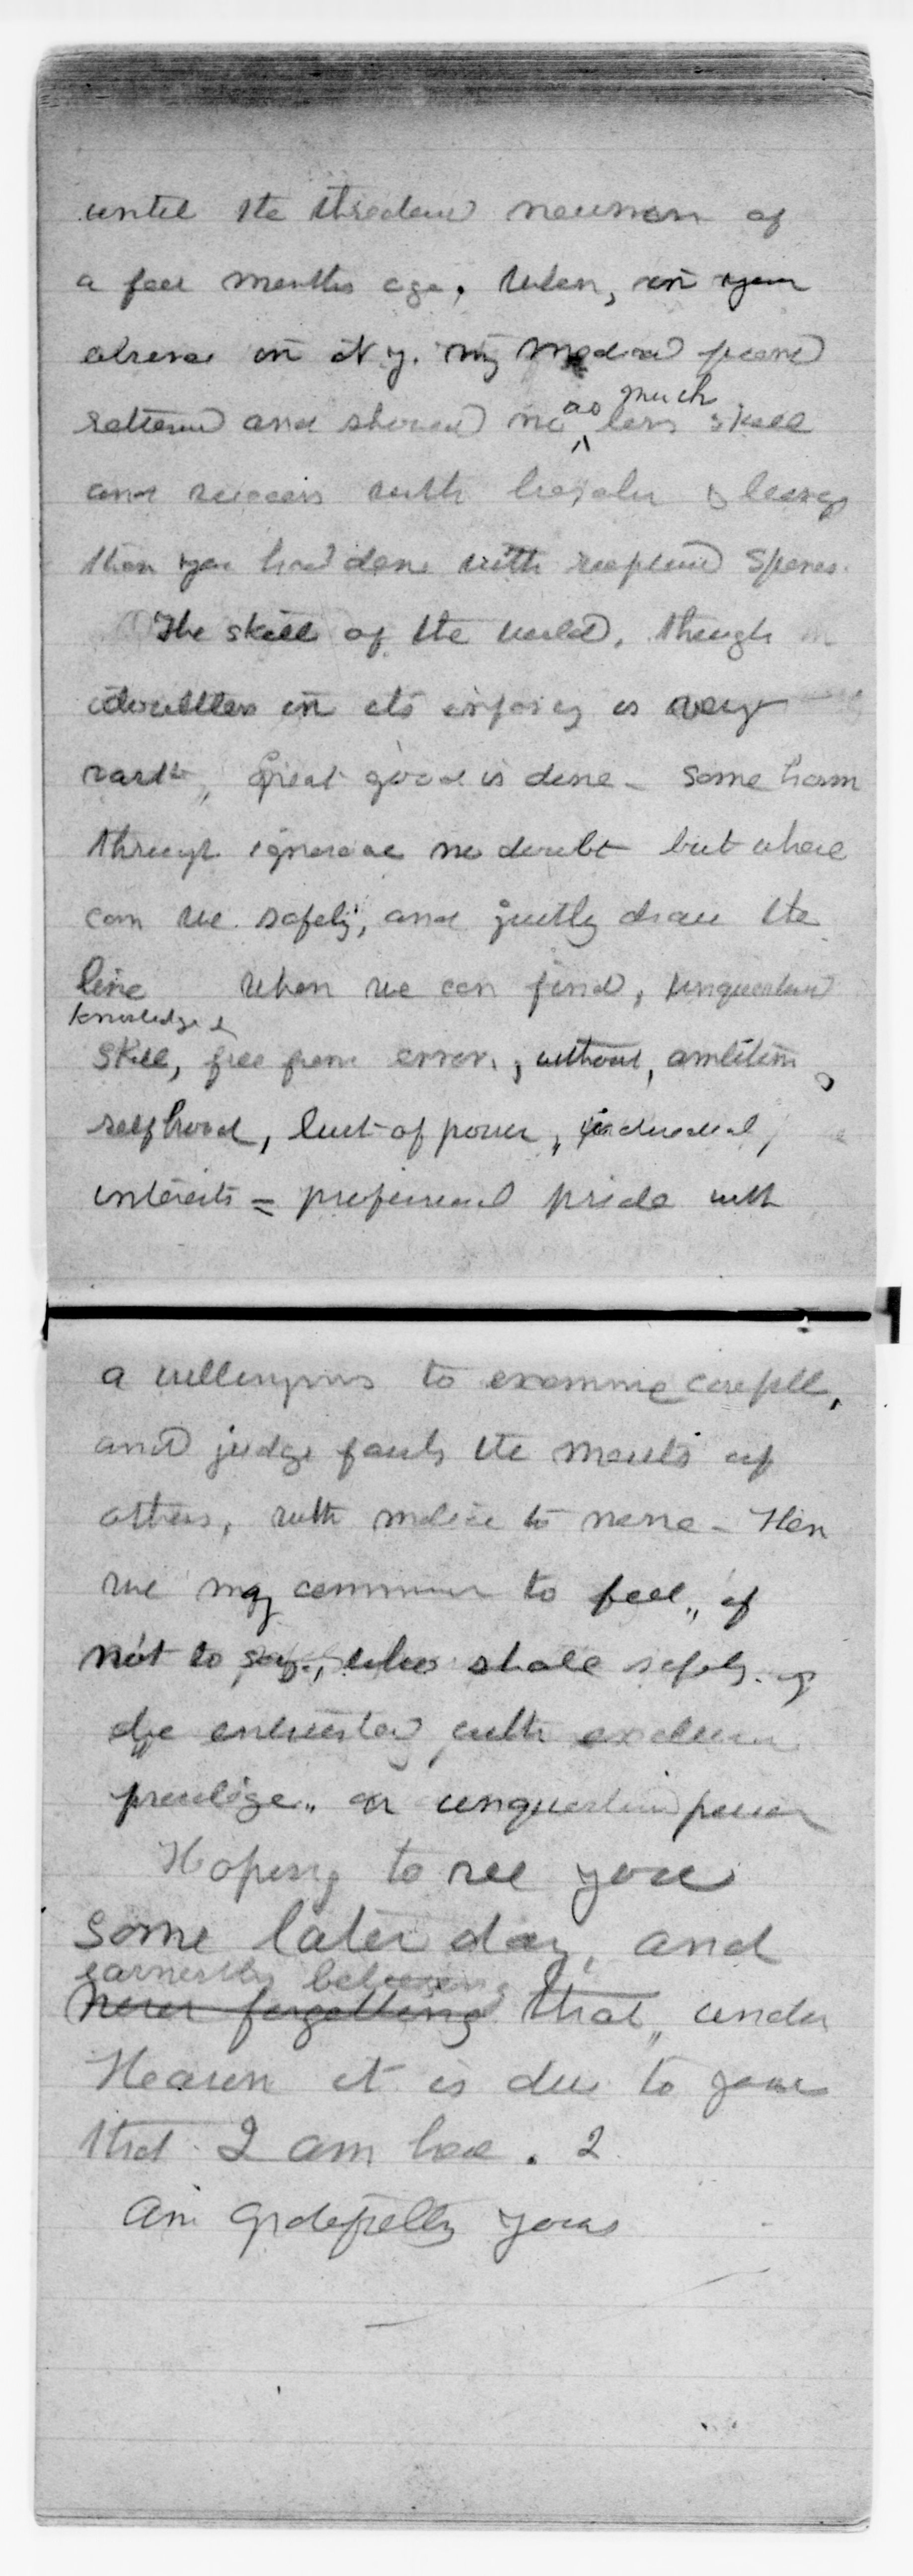 until the threatened pneumonia of
a few months ago. When, in your
absence in N Y. my medical friend
returned and showed no ^ as much less skill
and success with hepatic & lungs
than you had done with ruptured
The skill of the world, though
doubtless in its infancy is very
vast, Great good is done - Some harm
through ignorance no doubt but where
can we safely, and justly draw the
line When we can find, unquestioned
knowledge &
skill, free from error, without, ambition,
selfhood, lust of power, individual,
interests = professional pride with
a willingness to examine carefully,
and judge fairly the merits of
others, with malice to none - Then
we may commence to feel, if
not to say, who shall safely
be entrusted with exclusive
privilege, or unquestioned power
Hoping to see you
some later day, and
earnestly believing
never forgetting that, under
Heaven it is due to you
that I am here. I
am gratefully yours